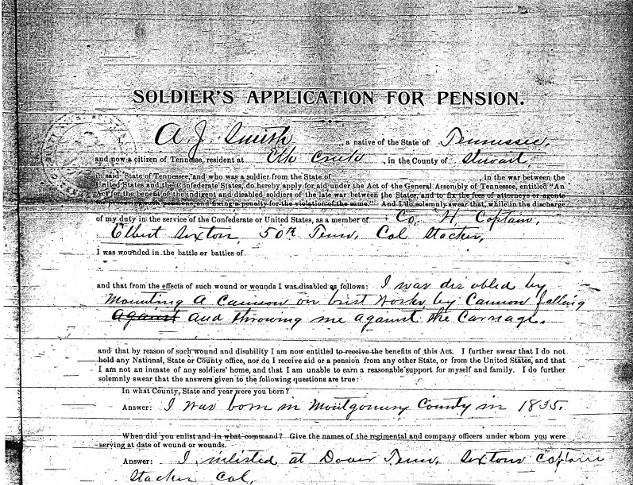 SOLDIER'S APPLICATION FOR PENSION.
A. J. Smith, a native of the State of Tennessee,
and now a citizen of Tennessee, resident at Elk Creek, in the County of Stewart,
in said State of Tennessee, and who was a soldier from the State of in the war between the
United States and the Confederate States, do hereby apply for aid under the Act of the General Assembly of Tennessee, entitled "An
Act for the benefit of the indigent and disabled soldiers of the late war between the States, and to fix the fees of attorneys or agents
and a penalty for the violation of the same." And I do solemnly swear that, while in the discharge
of my duty in the service of the Confederate or United States, as a member of Co. H. Coptain,
Elbert Sexton, 50th Tenn, Col Stacker,
I was wounded in the battle or battles of
and that from the effects of such wound or wounds I was disabled as follows: I was disobled by
Mounting A Cannon on brist works by Cannon falling
Against and throwing me against the Carriage.
and that by reason of such wound and disability I am now entitled to receive the benefits of this Act. I further swear that I do not
hold any National, State or County office, nor do I receive aid or a pension from any other State, or from the United States, and that
I am not an inmate of any soldiers' home, and that I am unable to earn a reasonable support for myself and family. I do further
solemnly swear that the answers given to the following questions are true:
In what County, State and year were you born?
Answer: I was born in Montgomery County in 1835.
When did you enlist and in what command? Give the names of the regimental and company officers under whom you were
serving at date of wound or wounds.
Answer: I inlisted at Dover Tenn, Sextons Coptain
Stacker Col,